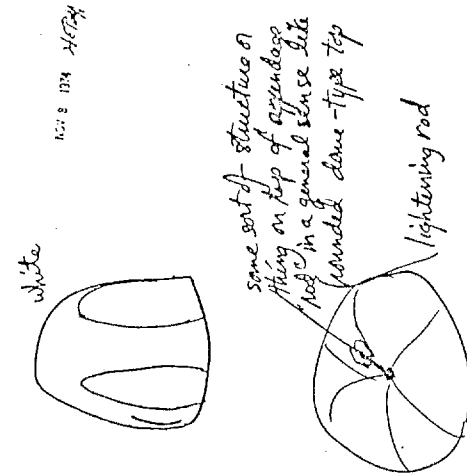 NOV 8 1974
white
some sort of structure or
thing on top of appendage
"rod" in a general sense like
rounded dome-type top
lightening rod